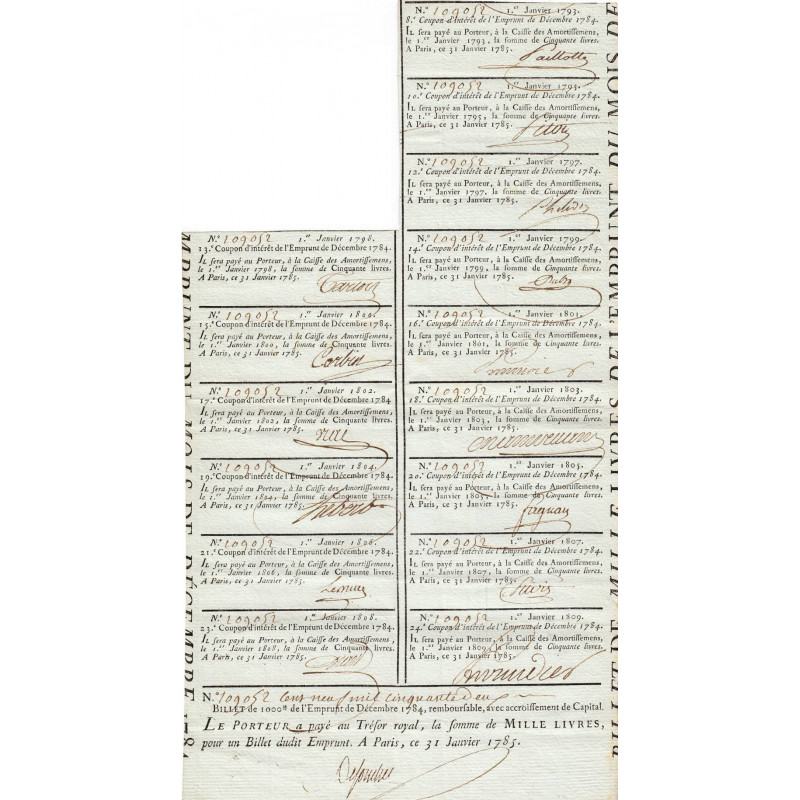 N.º 109052 1.er Janvier 1793.
8.e Coupon d'intérêt de l'Emprunt de Décembre 1784.
IL sera payé au Porteur, à la Caisse des Amortissemens,
le 1.er Janvier 1793, la somme de Cinquante livres.
A Paris, ce 31 Janvier 1785.
N.º 109052 1.er Janvier 1795.
10.e Coupon d'intérêt de l'Emprunt de Décembre 1784.
IL sera payé au Porteur, à la Caisse des Amortissemens,
le 1.er Janvier 1795, la somme de Cinquante livres.
A Paris, ce 31 Janvier 1785.
N.º 109052 1.er Janvier 1797.
12.e Coupon d'intérêt de l'Emprunt de Décembre 1784.
IL sera payé au Porteur, à la Caisse des Amortissemens,
le 1.er Janvier 1797, la somme de Cinquante livres.
A Paris, ce 31 Janvier 1785.
N.º 109052 1.er Janvier 1798.
13.e Coupon d'intérêt de l'Emprunt de Décembre 1784.
IL sera payé au Porteur, à la Caisse des Amortissemens,
le 1.er Janvier 1798, la somme de Cinquante livres.
A Paris, ce 31 Janvier 1785.
N.º 109052 1.er Janvier 1799.
14.e Coupon d'intérêt de l'Emprunt de Décembre 1784.
IL sera payé au Porteur, à la Caisse des Amortissemens,
le 1.er Janvier 1799, la somme de Cinquante livres.
A Paris, ce 31 Janvier 1785.
N.º 109052 1.er Janvier 1800.
15.e Coupon d'intérêt de l'Emprunt de Décembre 1784.
IL sera payé au Porteur, à la Caisse des Amortissemens,
le 1.er Janvier 1800, la somme de Cinquante livres.
A Paris, ce 31 Janvier 1785.
Corbin
N.º 109052 1.er Janvier 1801.
16.e Coupon d'intérêt de l'Emprunt de Décembre 1784.
IL sera payé au Porteur, à la Caisse des Amortissemens,
le 1.er Janvier 1801, la somme de Cinquante livres.
A Paris, ce 31 Janvier 1785.
N.º 109052 1.er Janvier 1802.
17.e Coupon d'intérêt de l'Emprunt de Décembre 1784
IL sera payé au Porteur, à la Caisse des Amortissemens,
le 1.er Janvier 1802, la somme de Cinquante livres.
A Paris, ce 31 Janvier 1785.
N.º 109052 1.er Janvier 1803.
18.e Coupon d'intérêt de l'Emprunt de Décembre 1784.
IL sera payé au Porteur, à la Caisse des Amortissemens,
le 1.er Janvier 1803, la somme de Cinquante livres.
A Paris, ce 31 Janvier 1785.
N.º 109052 1.er Janvier 1804.
19.e Coupon d'intérêt de l'Emprunt de Décembre 1784.
IL sera payé au Porteur, à la Caisse des Amortissemens,
le 1.er Janvier 1804, la somme de Cinquante livres.
A Paris, ce 31 Janvier 1785.
N.º 109052 1.er Janvier 1805.
20.e Coupon d'intérêt de l'Emprunt de Décembre 1784.
IL sera payé au Porteur, à la Caisse des Amortissemens,
le 1.er Janvier 1805, la somme de Cinquante livres.
A Paris, ce 31 Janvier 1785.
N.º 109052 1.er Janvier 1806.
21.e Coupon d'intérêt de l'Emprunt de Décembre 1784.
IL sera payé au Porteur, à la Caisse des Amortissemens,
le 1.er Janvier 1806, la somme de Cinquante livres.
A Paris, ce 31 Janvier 1785.
N.º 109052 1.er Janvier 1807.
22.e Coupon d'intérêt de l'Emprunt de Décembre 1784.
IL sera payé au Porteur, à la Caisse des Amortissemens,
le 1.er Janvier 1807, la somme de Cinquante livres.
A Paris, ce 31 Janvier 1785.
N.º 109052 1.er Janvier 1808.
23.e Coupon d'intérêt de l'Emprunt de Décembre 1784.
IL sera payé au Porteur, à la Caisse des Amortissemens,
le 1.er Janvier 1808, la somme de Cinquante livres.
A Paris, ce 31 Janvier 1785.
N.º 109052 1.er Janvier 1809.
24.e Coupon d'intérêt de l'Emprunt de Décembre 1784.
IL sera payé au Porteur, à la Caisse des Amortissemens,
le 1.er Janvier 1809, la somme de Cinquante livres.
A Paris, ce 31 Janvier 1785.
N.º 109052 Cent neuf mil cinquante deux
BILLET de 1000.tt de l'Emprunt de Décembre 1784, remboursable, avec accroissement de Capital.
LE PORTEUR a payé au Trésor royal, la somme de MILLE LIVRES,
pour un Billet dudit Emprunt. A Paris, ce 31 Janvier 1785.
MPRUNT DU MOIS DE DÉCEMBRE 1784
BILLET DE MILLE LIVRES DE L'EMPRUNT DU MOIS DE